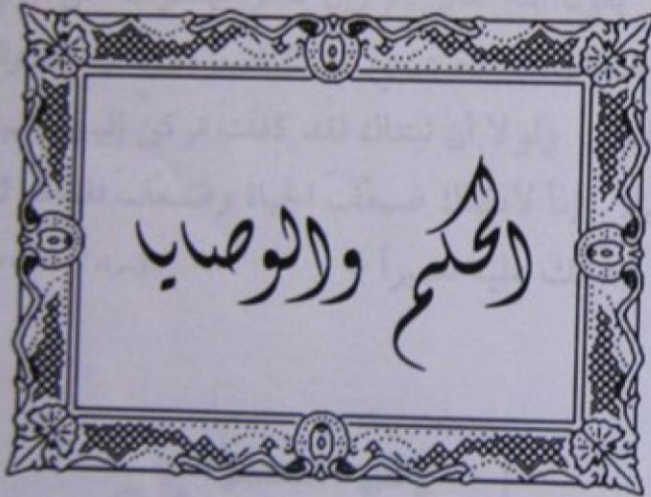 الحكم والوصايا